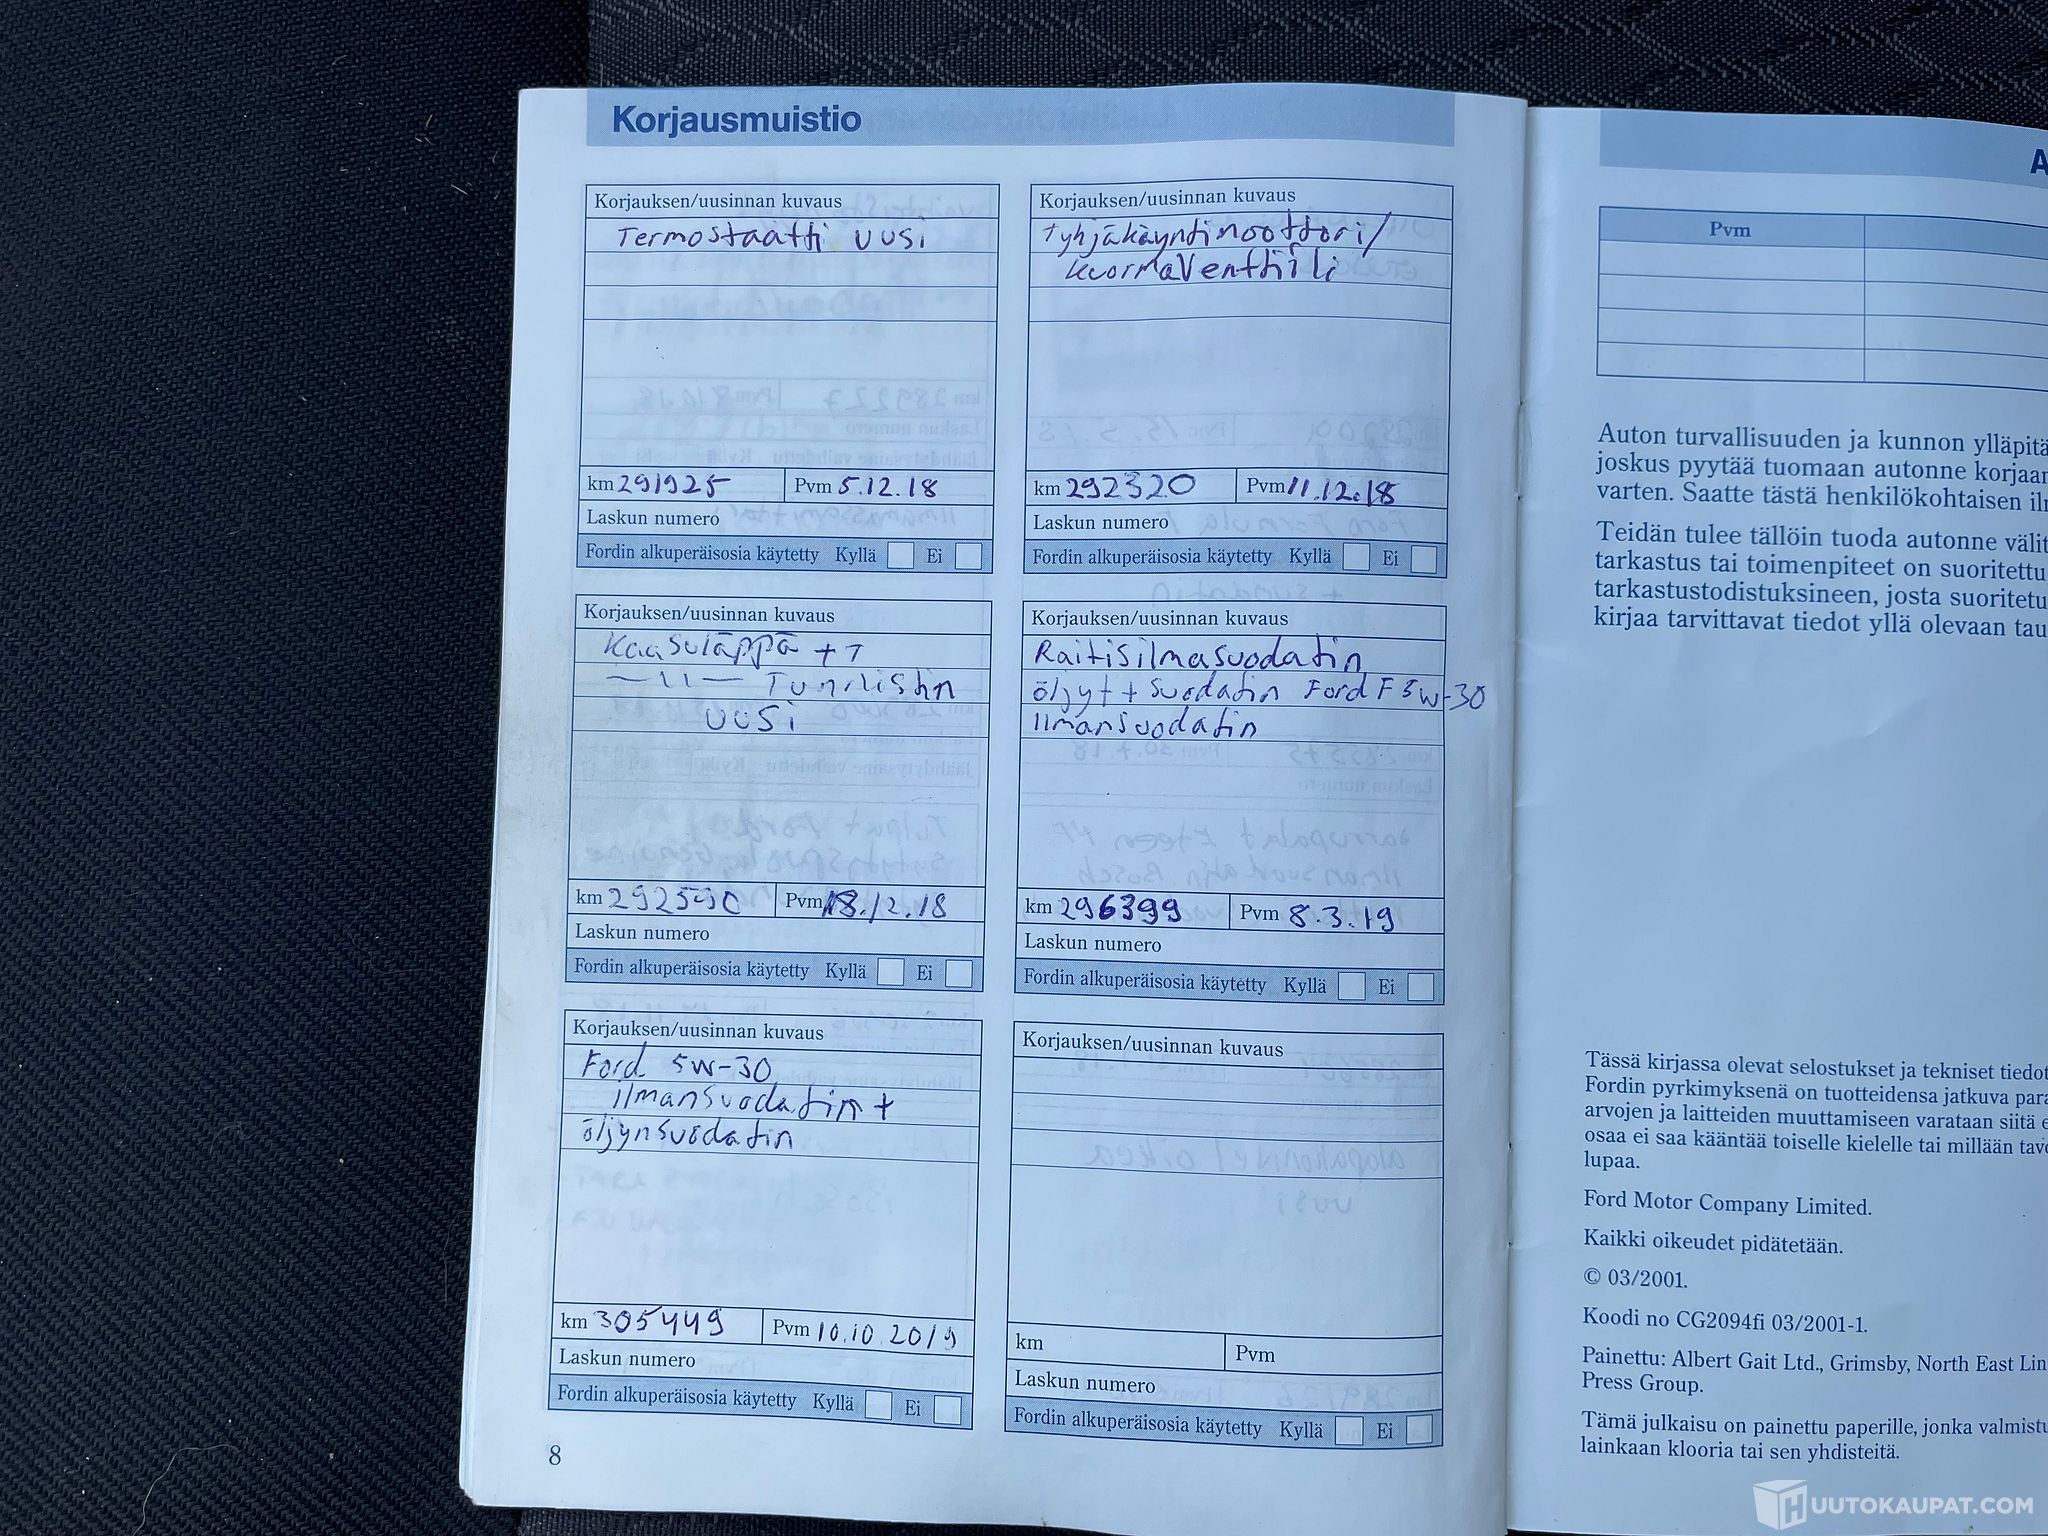 Korjausmuistio
Korjauksen/uusinnan kuvaus
Termostaatti uusi
km 291925 Pvm 5.12.18
Laskun numero
Fordin alkuperäisosia käytetty Kyllä Ei
Korjauksen/uusinnan kuvaus
Tyhjäkäyntimoottori/
kuormaventtiili
km 292320 Pvm 11.12.18
Laskun numero
Fordin alkuperäisosia käytetty Kyllä Ei
Korjauksen/uusinnan kuvaus
Kaasuläppä + T
— 11 —
uusi
km 292590 Pvm 18.12.18
Laskun numero
Fordin alkuperäisosia käytetty Kyllä Ei
Korjauksen/uusinnan kuvaus
Raitisilmasuodatin
öljyt + suodatin Ford F 5w-30
Ilmansuodatin
km 296399 Pvm 8.3.19
Laskun numero
Fordin alkuperäisosia käytetty Kyllä Ei
Korjauksen/uusinnan kuvaus
Ford 5w-30
ilmansuodatin +
öljynsuodatin
km 305449 Pvm 10.10.2019
Laskun numero
Fordin alkuperäisosia käytetty Kyllä Ei
Korjauksen/uusinnan kuvaus
km Pvm
Laskun numero
Fordin alkuperäisosia käytetty Kyllä Ei
8
A
Pvm
Auton turvallisuuden ja kunnon ylläpitä
joskus pyytää tuomaan autonne korjaam
varten. Saatte tästä henkilökohtaisen il
Teidän tulee tällöin tuoda autonne välit
tarkastus tai toimenpiteet on suoritettu
tarkastustodistuksineen, josta suoritetu
kirjaa tarvittavat tiedot yllä olevaan tau
Tässä kirjassa olevat selostukset ja tekniset tiedot
Fordin pyrkimyksenä on tuotteidensa jatkuva para
arvojen ja laitteiden muuttamiseen varataan siitä e
osaa ei saa kääntää toiselle kielelle tai millään tavo
lupaa.
Ford Motor Company Limited.
Kaikki oikeudet pidätetään.
© 03/2001.
Koodi no CG2094fi 03/2001-1.
Painettu: Albert Gait Ltd., Grimsby, North East Lin
Press Group.
Tämä julkaisu on painettu paperille, jonka valmistu
lainkaan klooria tai sen yhdisteitä.
HUUTOKAUPAT.COM